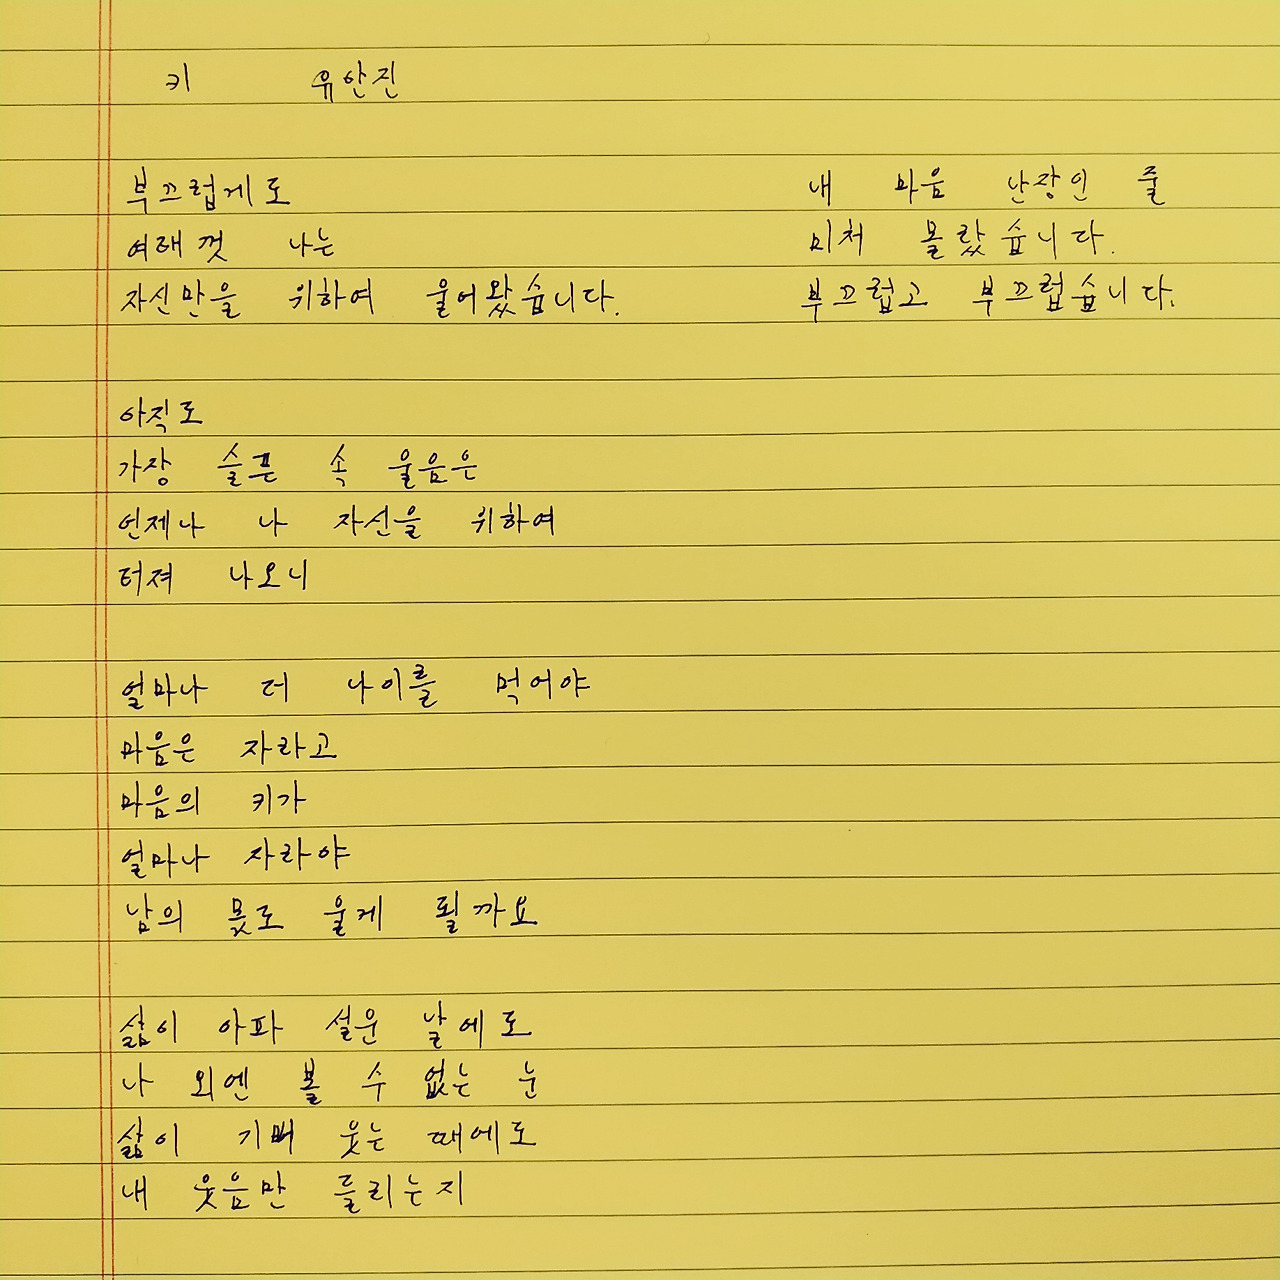 키 유안진
부끄럽게도
여래껏 나는
자신만을 위하여 울어왔습니다.
아직도
가장 슬픈 속 울음은
언제나 나 자신을 위하여
터져 나오니
얼마나 더 나이를 먹어야
마음은 자라고
마음의 키가
얼마나 자라야
남의 몫도 울게 될까요
삶이 아파 설운 날에도
나 외엔 볼 수 없는 눈
삶이 기뻐 웃는 때에도
내 웃음만 들리는지
내 마음 난장인 줄
미처 몰랐습니다.
부끄럽고 부끄럽습니다.